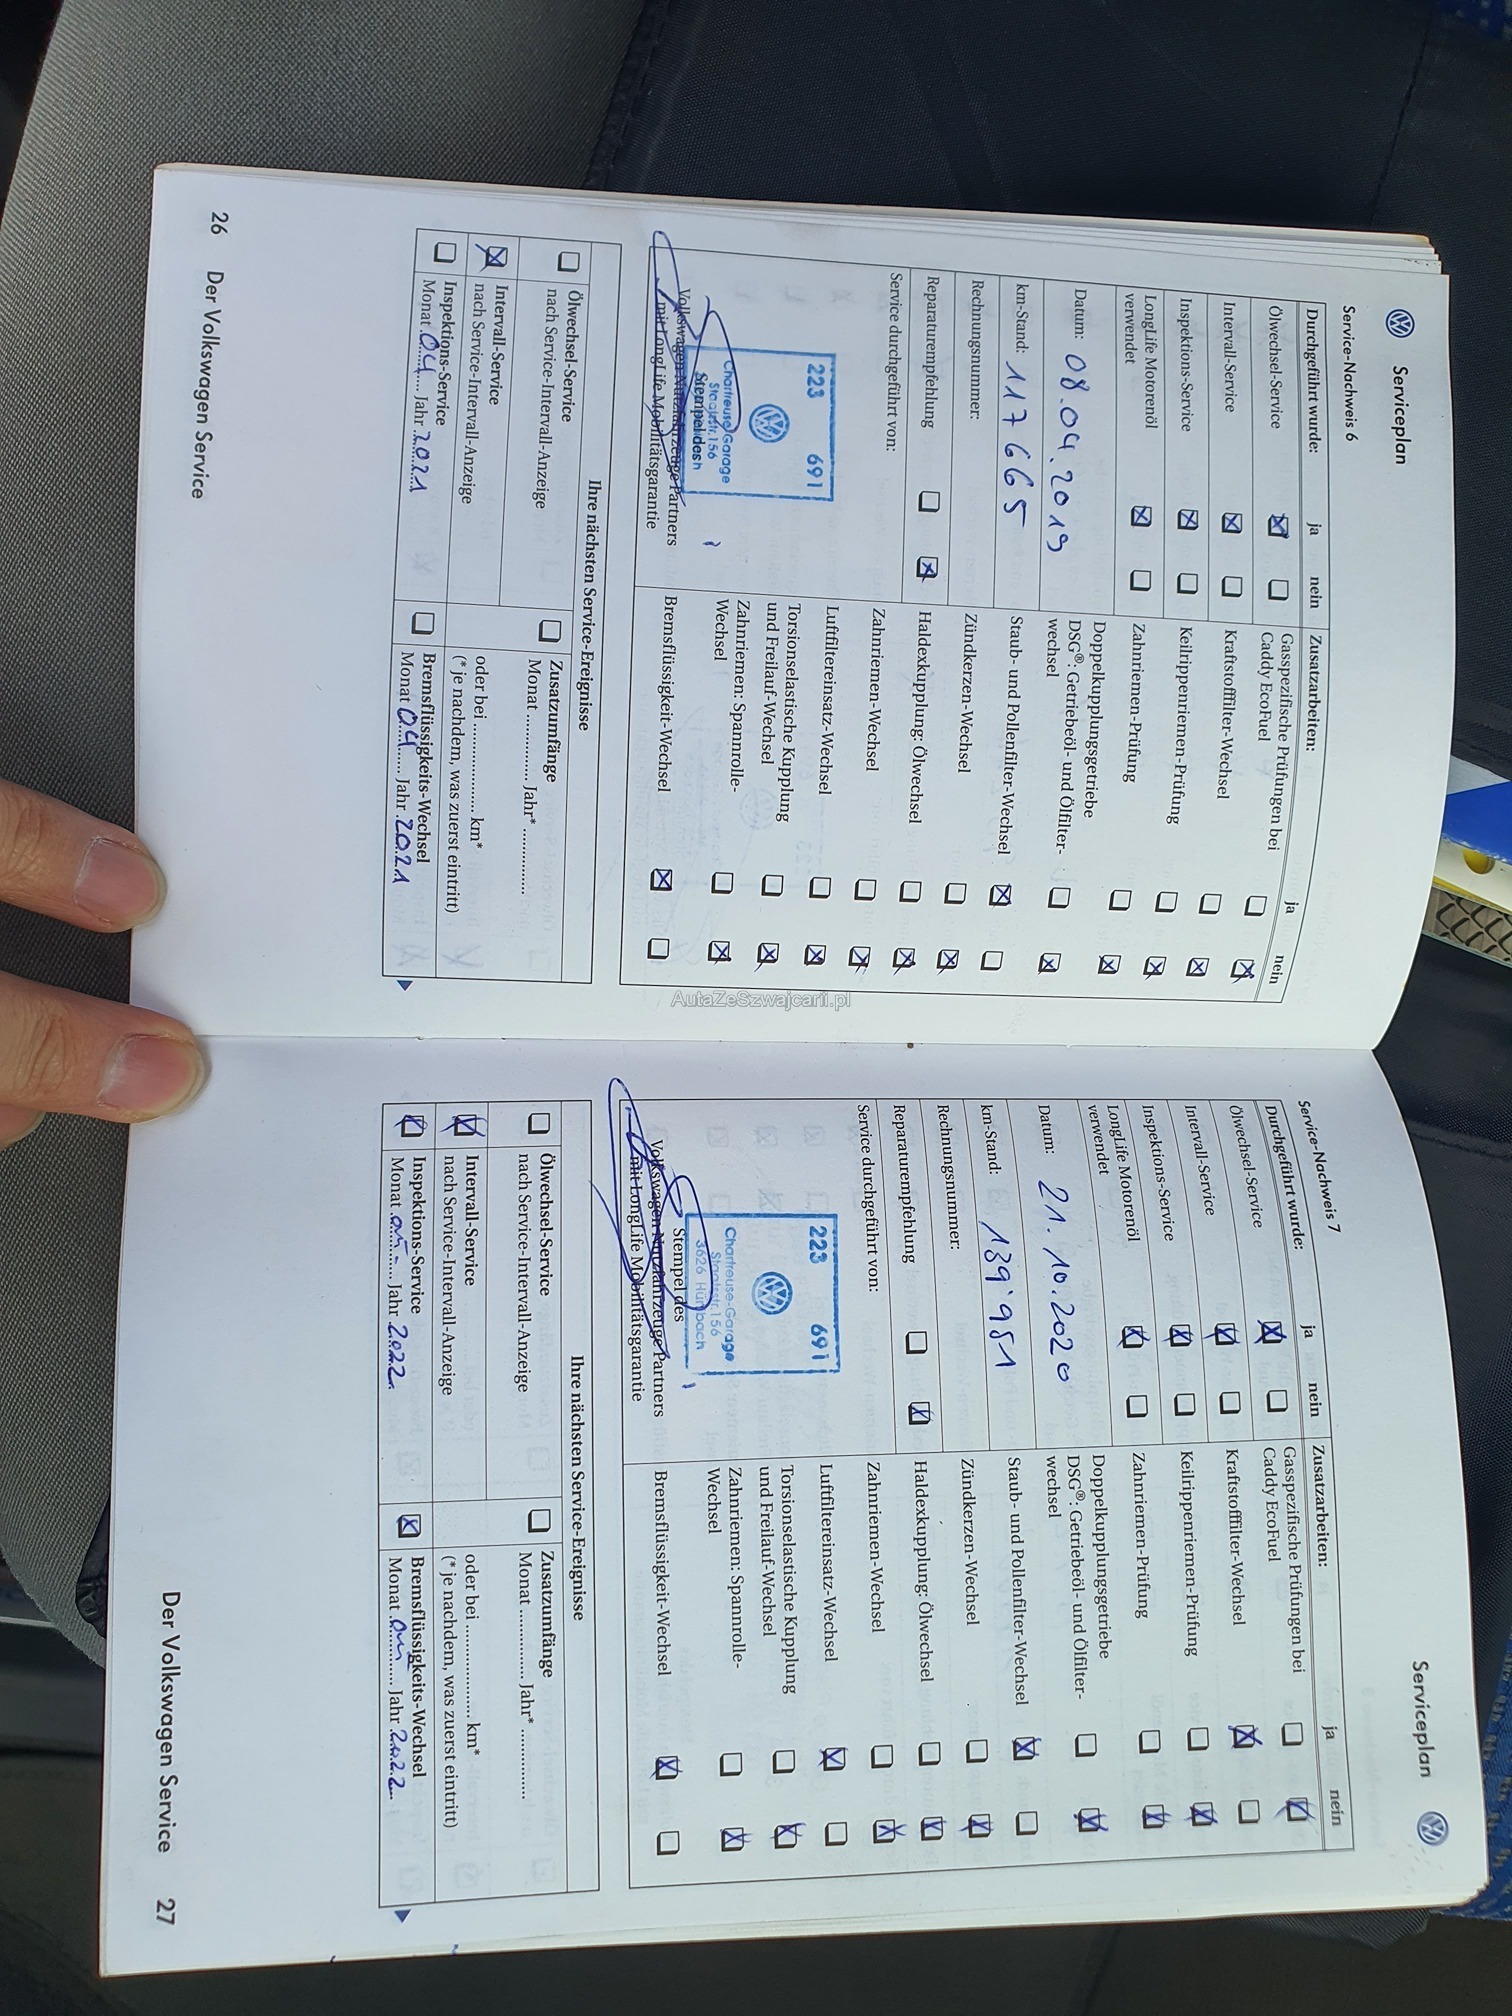 Serviceplan
Service-Nachweis 6
Durchgeführt wurde: ja nein
Ölwechsel-Service
Intervall-Service
Inspektions-Service
LongLife Motorenöl
verwendet
Datum: 08.04.2019
km-Stand: 117665
Rechnungsnummer:
Reparaturempfehlung
Service durchgeführt von:
223 691
Chartreuse Garage
Staatsstr.156
Stempel des
Volkswagen Nutzfahrzeuge Partners
mit LongLife Mobilitätsgarantie
Zusatzarbeiten: ja nein
Gasspezifische Prüfungen bei
Caddy EcoFuel
Kraftstofffilter-Wechsel
Keilrippenriemen-Prüfung
Zahnriemen-Prüfung
Doppelkupplungsgetriebe
DSG®: Getriebeöl- und Ölfilter-
wechsel
Staub- und Pollenfilter-Wechsel
Zündkerzen-Wechsel
Haldexkupplung: Ölwechsel
Zahnriemen-Wechsel
Luftfiltereinsatz-Wechsel
Torsionselastische Kupplung
und Freilauf-Wechsel
Zahnriemen: Spannrolle-
Wechsel
Bremsflüssigkeit-Wechsel
Ihre nächsten Service-Ereignisse
Ölwechsel-Service
nach Service-Intervall-Anzeige
Intervall-Service
nach Service-Intervall-Anzeige
Inspektions-Service
Monat 04 Jahr 2021
Zusatzumfänge
Monat ............ Jahr* ............
oder bei ................ km*
(*je nachdem, was zuerst eintritt)
Bremsflüssigkeits-Wechsel
Monat 04 Jahr 2021
26 Der Volkswagen Service
AutaZeSzwajcarii.pl
Serviceplan
Service-Nachweis 7
Durchgeführt wurde: ja nein
Ölwechsel-Service
Intervall-Service
Inspektions-Service
LongLife Motorenöl
verwendet
Datum: 21.10.2020
km-Stand: 139'951
Rechnungsnummer:
Reparaturempfehlung
Service durchgeführt von:
223 691
Chartreuse-Garage
Staatsstr.156
3626 Hünibach
Stempel des
Volkswagen Nutzfahrzeuge Partners
mit LongLife Mobilitätsgarantie
Zusatzarbeiten: ja nein
Gasspezifische Prüfungen bei
Caddy EcoFuel
Kraftstofffilter-Wechsel
Keilrippenriemen-Prüfung
Zahnriemen-Prüfung
Doppelkupplungsgetriebe
DSG®: Getriebeöl- und Ölfilter-
wechsel
Staub- und Pollenfilter-Wechsel
Zündkerzen-Wechsel
Haldexkupplung: Ölwechsel
Zahnriemen-Wechsel
Luftfiltereinsatz-Wechsel
Torsionselastische Kupplung
und Freilauf-Wechsel
Zahnriemen: Spannrolle-
Wechsel
Bremsflüssigkeit-Wechsel
Ihre nächsten Service-Ereignisse
Ölwechsel-Service
nach Service-Intervall-Anzeige
Intervall-Service
nach Service-Intervall-Anzeige
Inspektions-Service
Monat Jahr 2022
Zusatzumfänge
Monat ............ Jahr* ............
oder bei ................ km*
(*je nachdem, was zuerst eintritt)
Bremsflüssigkeits-Wechsel
Monat Jahr 2022
Der Volkswagen Service 27